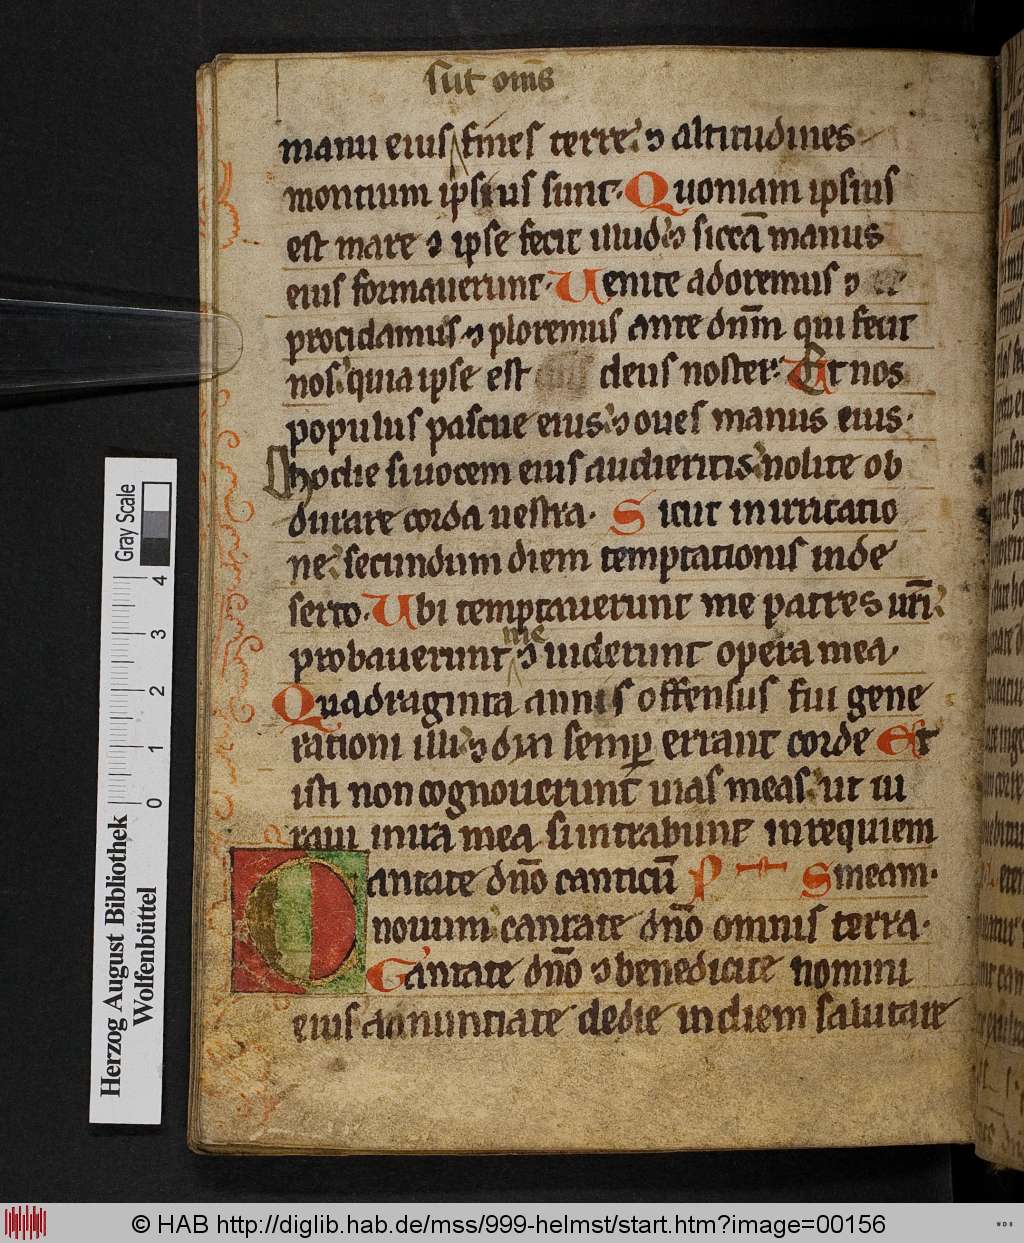 sūt om̄s
manu eius fines terre. ⁊ altitudines
montium ipsius sunt. Quoniam ipsius
est mare ⁊ ipse fecit illud. ⁊ siccā manus
eius formauerunt. Uenite adoremus ⁊
procidamus. ⁊ ploremus ante dn̄m qui fecit
nos. quia ipse est deus noster. Et nos
populus pascue eius. ⁊ oues manus eius.
hodie si uocem eius audieritis. nolite ob
durare corda uestra. Sicut in irritatio
ne. secundum diem temptationis in de
serto. Ubi temptauerunt me patres ur̄i.
me
probauerunt ⁊ uiderunt opera mea.
Quadraginta annis offensus fui gene
rationi illi. ⁊ dixi semꝑ errant corde Et
isti non cognouerunt uias meas. ut iu
raui in ira mea. si intrabunt in requiem
Cantate dn̄o canticū P S meam.
nouum. cantate dn̄o omnis terra.
Cantate dn̄o ⁊ benedicite nomini
eius annuntiate de die in diem salutare
Gray Scale
4
3
2
1
0
Herzog August Bibliothek
Wolfenbüttel
© HAB http://diglib.hab.de/mss/999-helmst/start.htm?image=00156
WDB